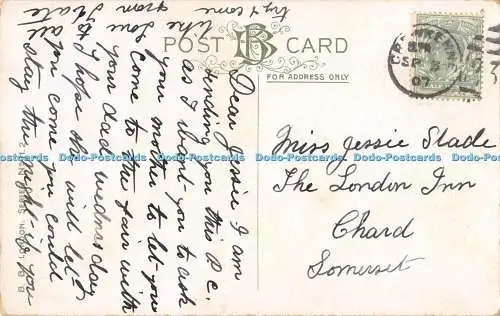 try & come
POST CARD
FOR ADDRESS ONLY
Dear Jessie I am
sending you this P.C.
as I want you to ask
your mother to let you
come to the fair with
your dad wednesday
I hope she will let
you come you could
stay the night if you
like
from
Miss Jessie Slade
The London Inn
Chard
Somerset
CREWKERNE
SP
07
Dodo-Postcards Dodo-Postcards Dodo-Postcards Dodo-Postcards Dodo-Postcards